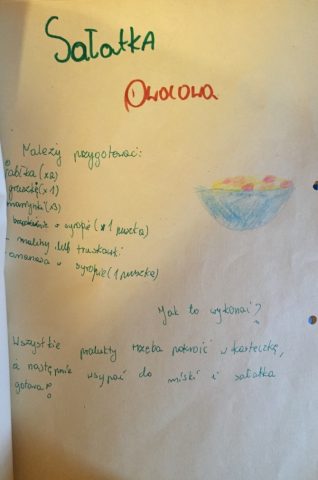 Sałatka
Owocowa
Należy przygotować:
jabłka (x2)
gruszkę (x1)
marchewki (x3)
brzoskwinie w syropie (x1 puszka)
- maliny lub truskawki
ananasa w syropie (1 puszkę)
Jak to wykonać?
Wszystkie produkty trzeba pokroić w kosteczkę,
a następnie wsypać do miski i sałatka
gotowa!